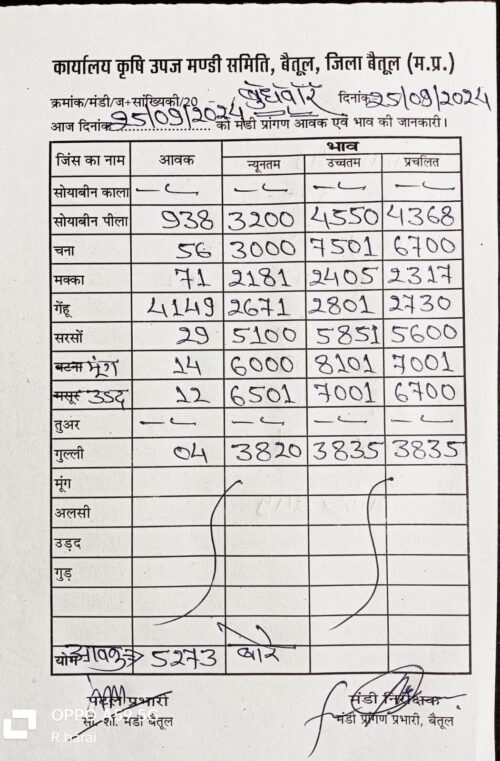 कार्यालय कृषि उपज मण्डी समिति, बैतूल, जिला बैतूल (म.प्र.)
क्रमांक/मंडी/ज+सांख्यिकी/20 बुधवार दिनांक 25/09/2024
आज दिनांक 25/09/2024 को मंडी प्रांगण आवक एवं भाव की जानकारी।
जिंस का नाम आवक भाव
न्यूनतम उच्चतम प्रचलित
सोयाबीन काला
सोयाबीन पीला 938 3200 4550 4368
चना 56 3000 7501 6700
मक्का 71 2181 2405 2317
गेंहू 4149 2671 2801 2730
सरसों 29 5100 5851 5600
बटना मूंग 14 6000 8101 7001
मसूर उडद 12 6501 7001 6700
तुअर
गुल्ली 04 3820 3835 3835
मूंग
अलसी
उड़द
गुड़
योग आवक 5273 बोरे
पटल प्रभारी मंडी निरीक्षक
सां. शा. मंडी बैतूल मंडी प्रांगण प्रभारी, बैतूल
R barai